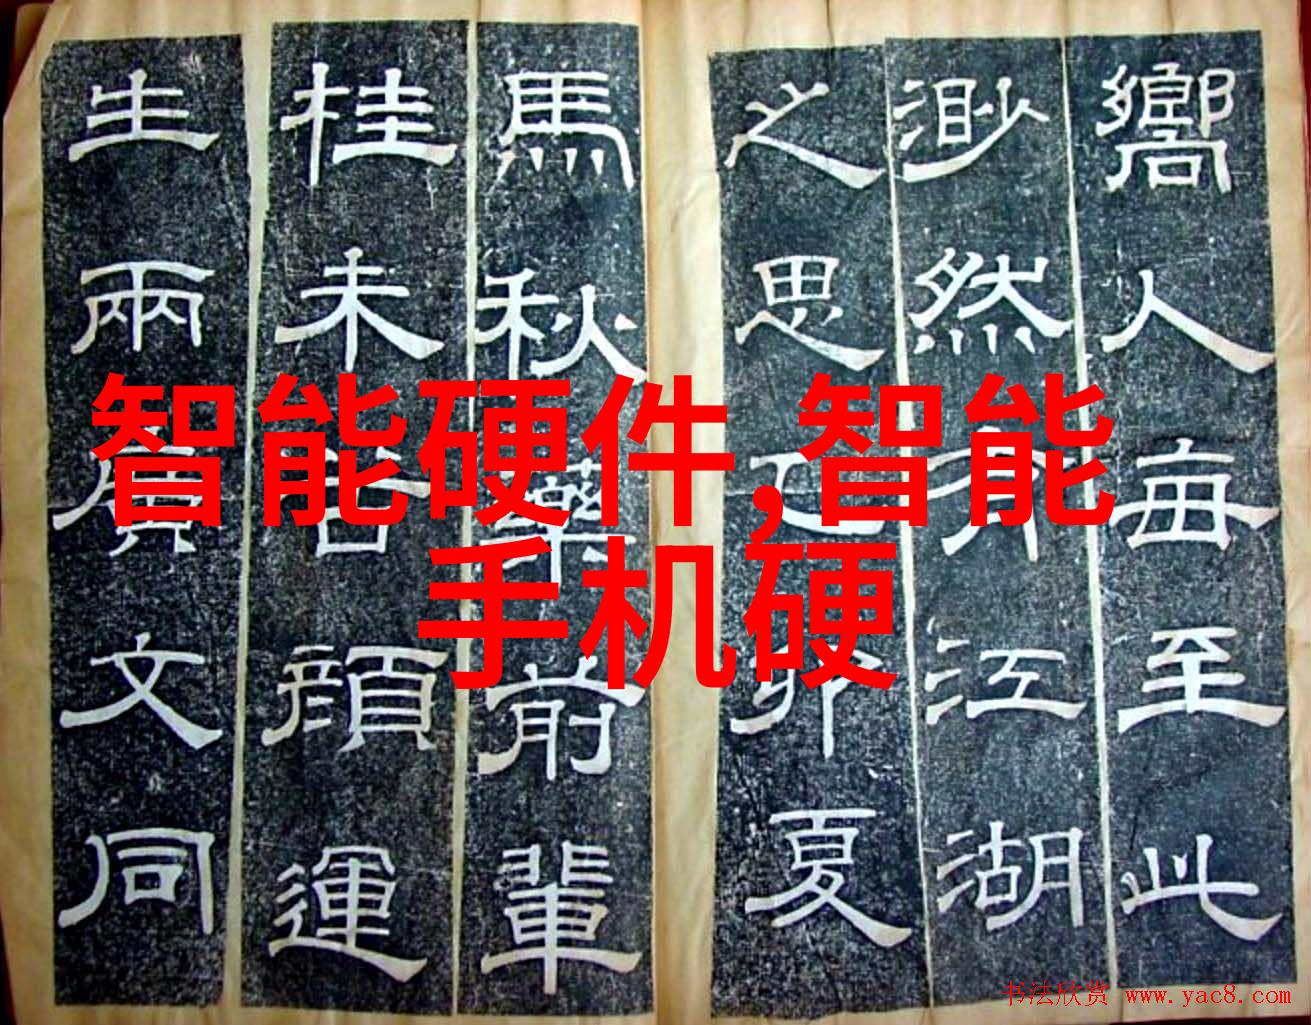 嚮人每至此
渺然有江湖
之思卯夏
馬秋藥前輩
桂未谷顏運
生兩廣文同
智能硬件,智能
手机硬
书法欣赏 www.yac8.com